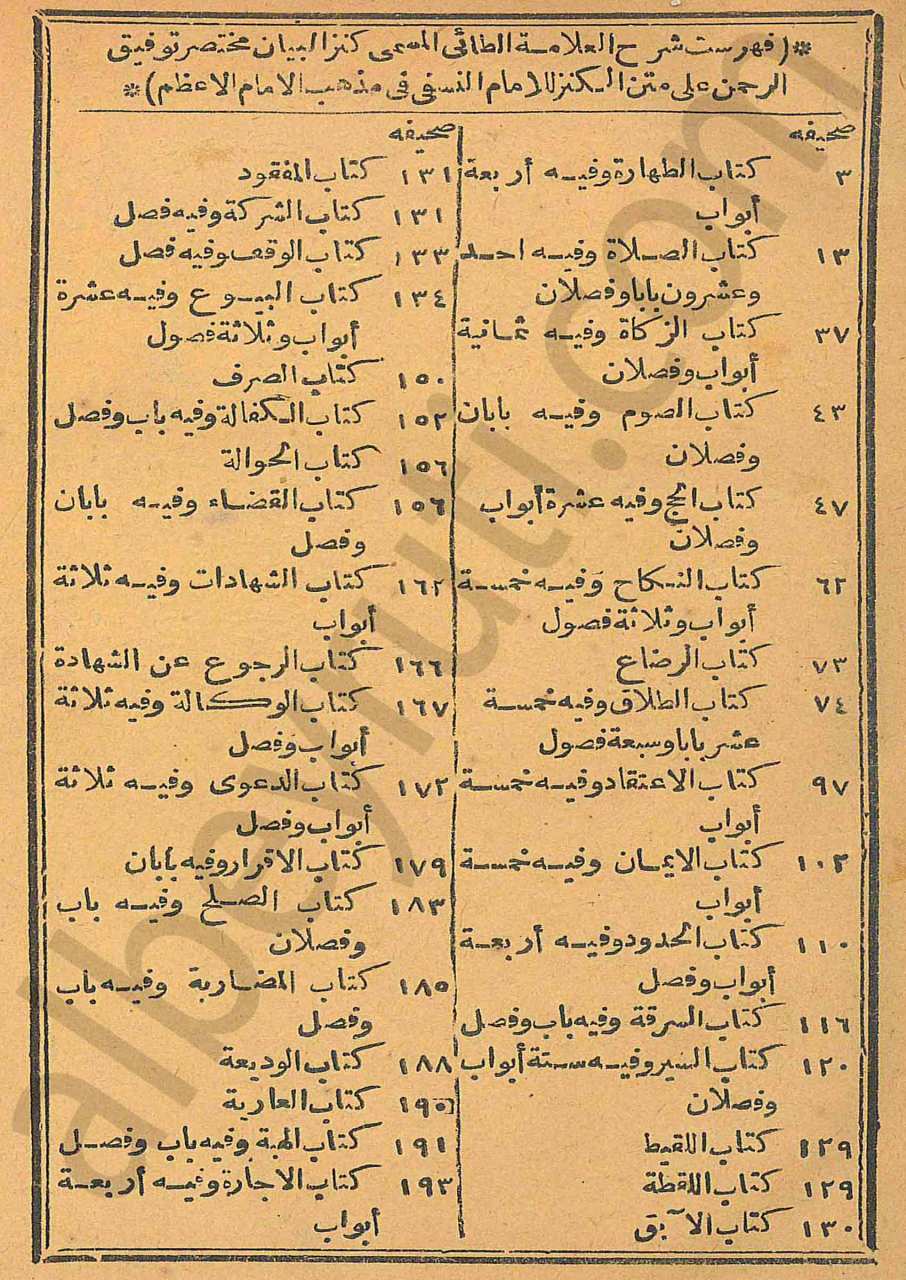 *(فهرست شرح العلامة الطائى المسمى كنز البيان مختصر توفيق
الرحمن على متن الكنز للامام النسفى فى مذهب الامام الاعظم)*
صحيفه
٣ كتاب الطهارة وفيه أربعة
أبواب
١٣ كتاب الصلاة وفيه احد
وعشرون بابا وفصلان
٣٧ كتاب الزكاة وفيه ثمانية
أبواب وفصلان
٤٣ كتاب الصوم وفيه بابان
وفصلان
٤٧ كتاب الحج وفيه عشرة أبواب
وفصلان
٦٢ كتاب النكاح وفيه خمسة
أبواب وثلاثة فصول
٧٣ كتاب الرضاع
٧٤ كتاب الطلاق وفيه خمسة
عشر بابا وسبعة فصول
٩٧ كتاب الاعتقاد وفيه خمسة
أبواب
١٠٢ كتاب الايمان وفيه خمسة
أبواب
١١٠ كتاب الحدود وفيه أربعة
أبواب وفصل
١١٦ كتاب السرقة وفيه باب وفصل
١٢٠ كتاب السير وفيه ستة أبواب
وفصلان
١٢٩ كتاب اللقيط
١٢٩ كتاب اللقطة
١٣٠ كتاب الآبق
صحيفه
١٣١ كتاب المفقود
١٣١ كتاب الشركة وفيه فصل
١٣٣ كتاب الوقف وفيه فصل
١٣٤ كتاب البيوع وفيه عشرة
أبواب وثلاثة فصول
١٥٠ كتاب الصرف
١٥٢ كتاب الكفالة وفيه باب وفصل
١٥٦ كتاب الحوالة
١٥٦ كتاب القضاء وفيه بابان
وفصل
١٦٢ كتاب الشهادات وفيه ثلاثة
أبواب
١٦٦ كتاب الرجوع عن الشهادة
١٦٧ كتاب الوكالة وفيه ثلاثة
أبواب وفصل
١٧٢ كتاب الدعوى وفيه ثلاثة
أبواب وفصل
١٧٩ كتاب الاقرار وفيه بابان
١٨٣ كتاب الصلح وفيه باب
وفصلان
١٨٥ كتاب المضاربة وفيه باب
وفصل
١٨٨ كتاب الوديعة
١٩٠ كتاب العارية
١٩١ كتاب الهبة وفيه باب وفصل
١٩٣ كتاب الاجارة وفيه أربعة
أبواب
albeyruti.com